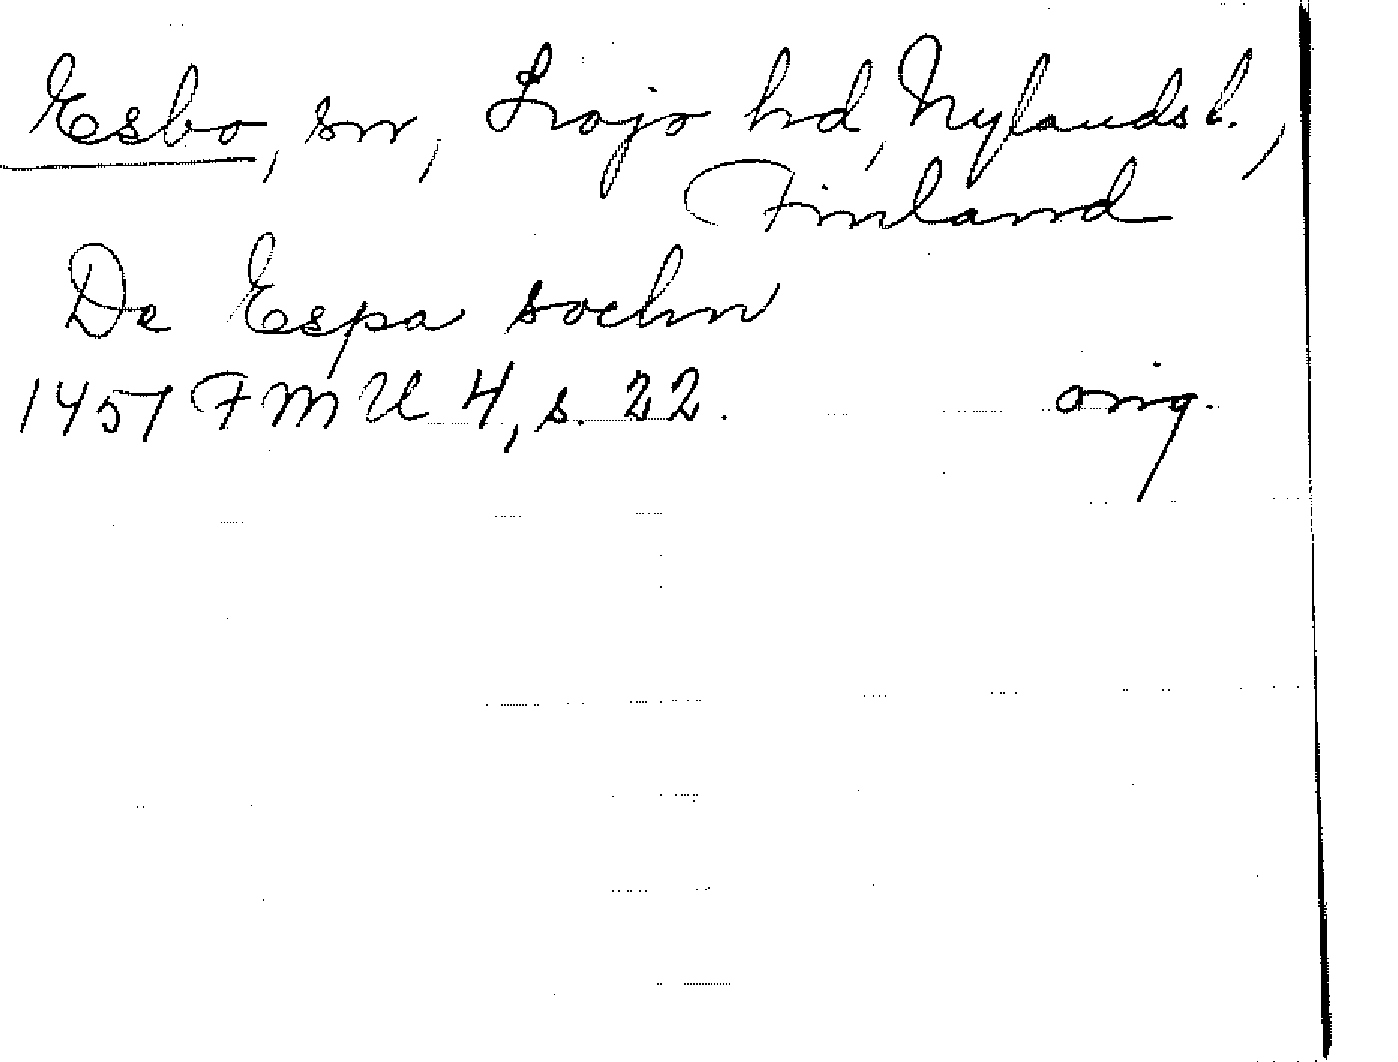 Esbo, sn, Lojo hd, Nylands l.,
Finland
De Espa sochn
1457 FMU 4, s. 22. orig.